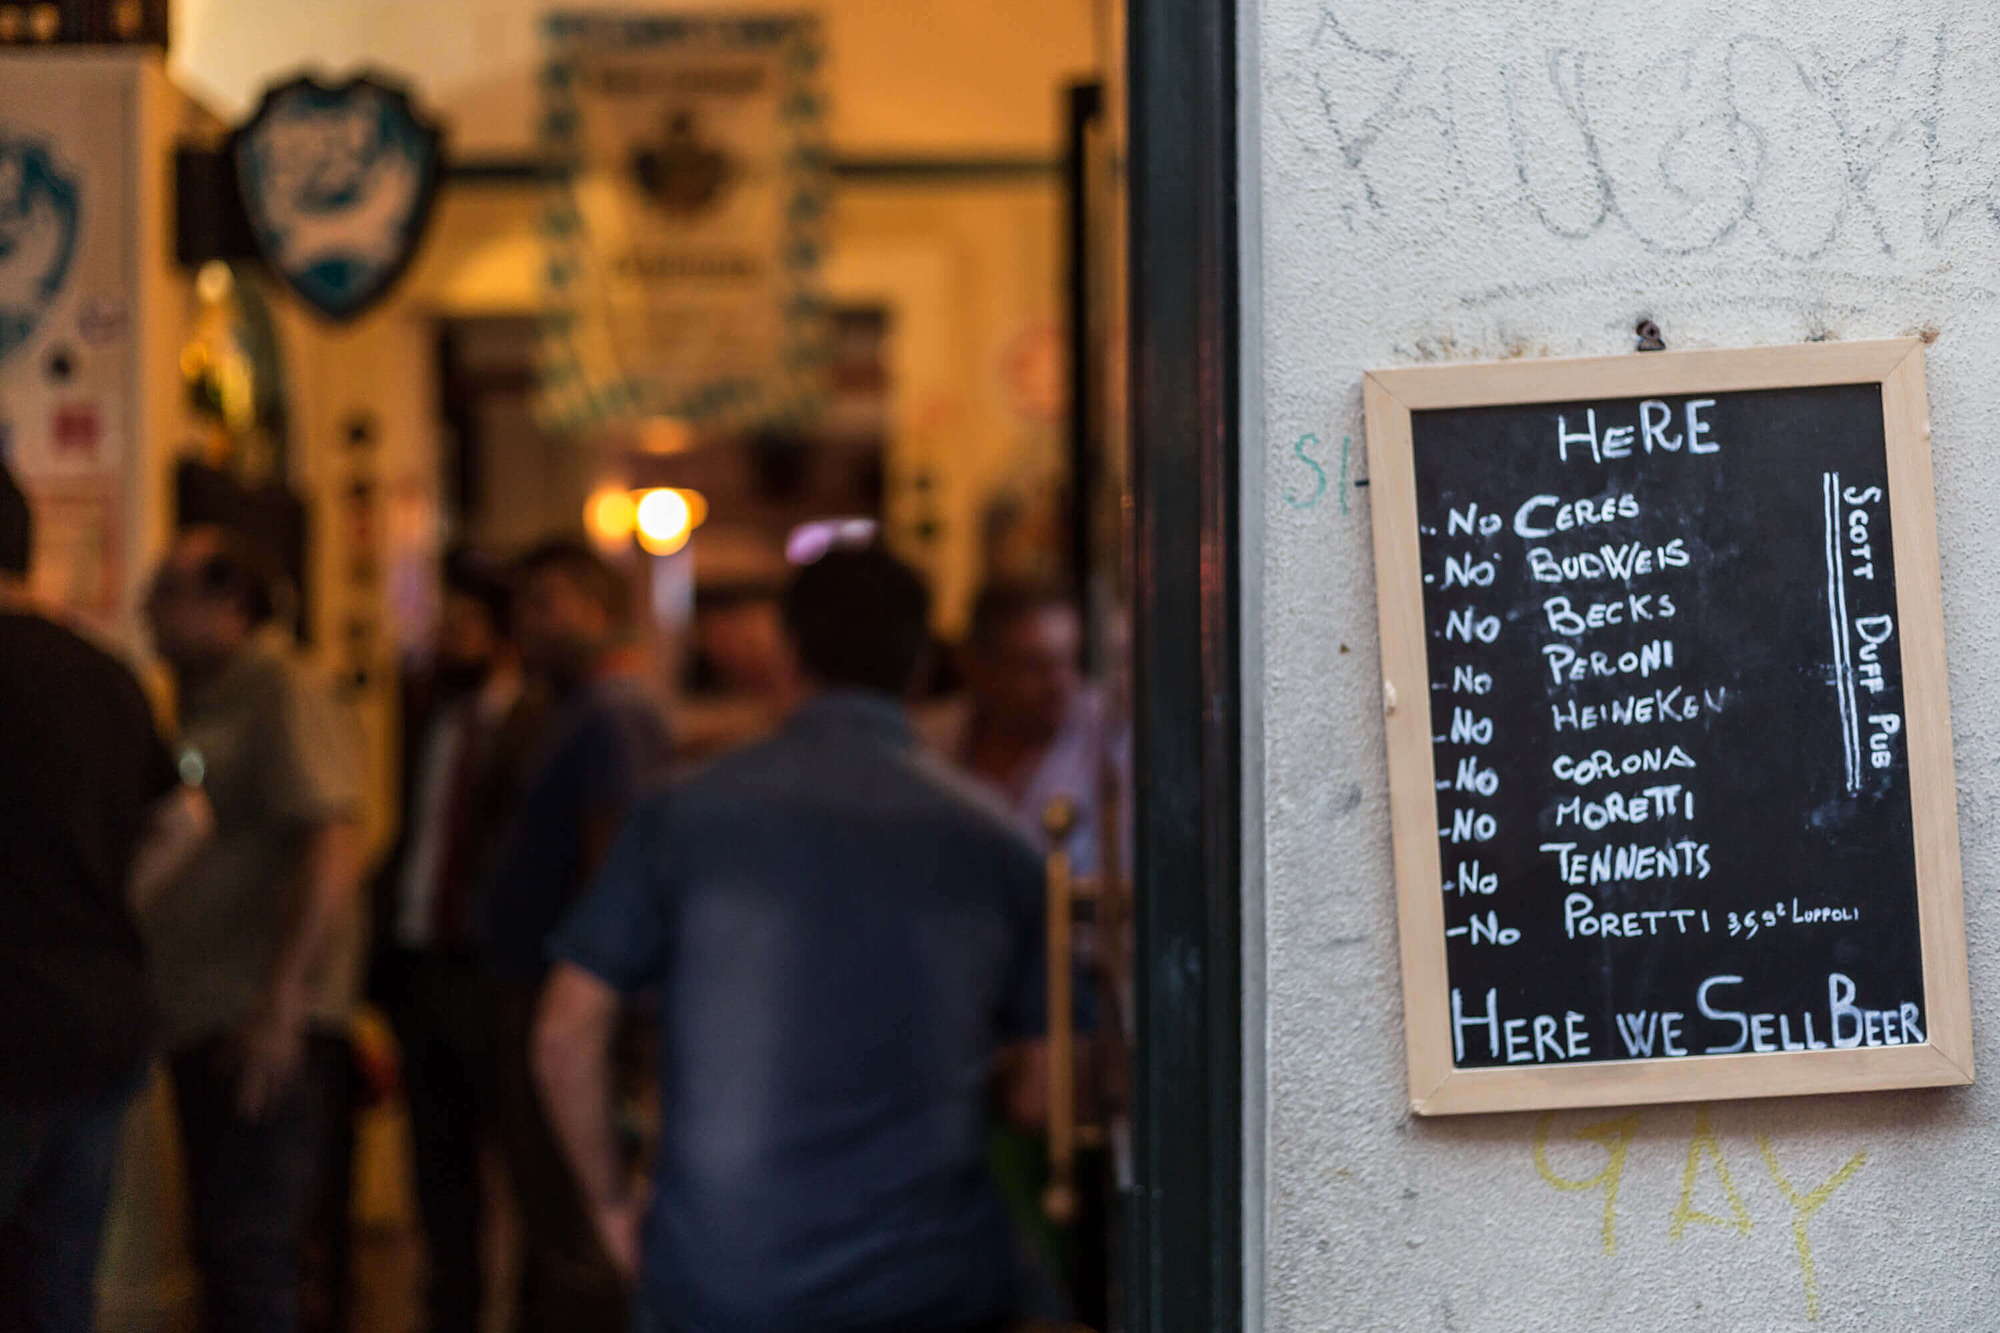 HeRE
.. No CERES
- No BUDWEIS
- No BECKS
- No PERONI
- No HEINEKEN
- No CORONA
- No MORETTI
- No TENNENTS
- No PORETTI 3,6,9² LUPPOLI
HERE WE SELL BEER
SCOTT DUFF PUB
SI
GAY